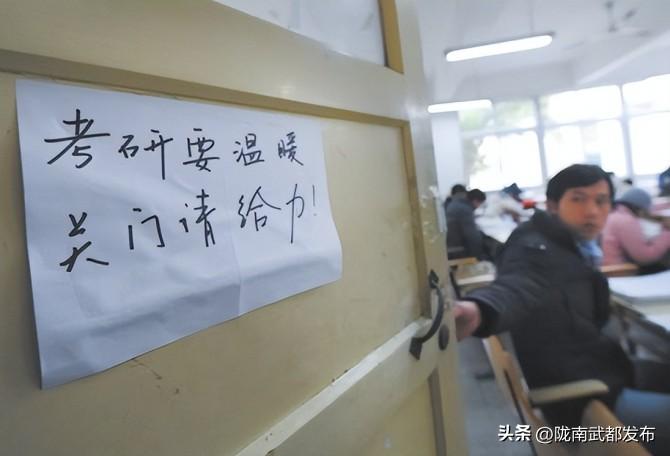 考研要温暖
关门请给力!
头条 @陇南武都发布